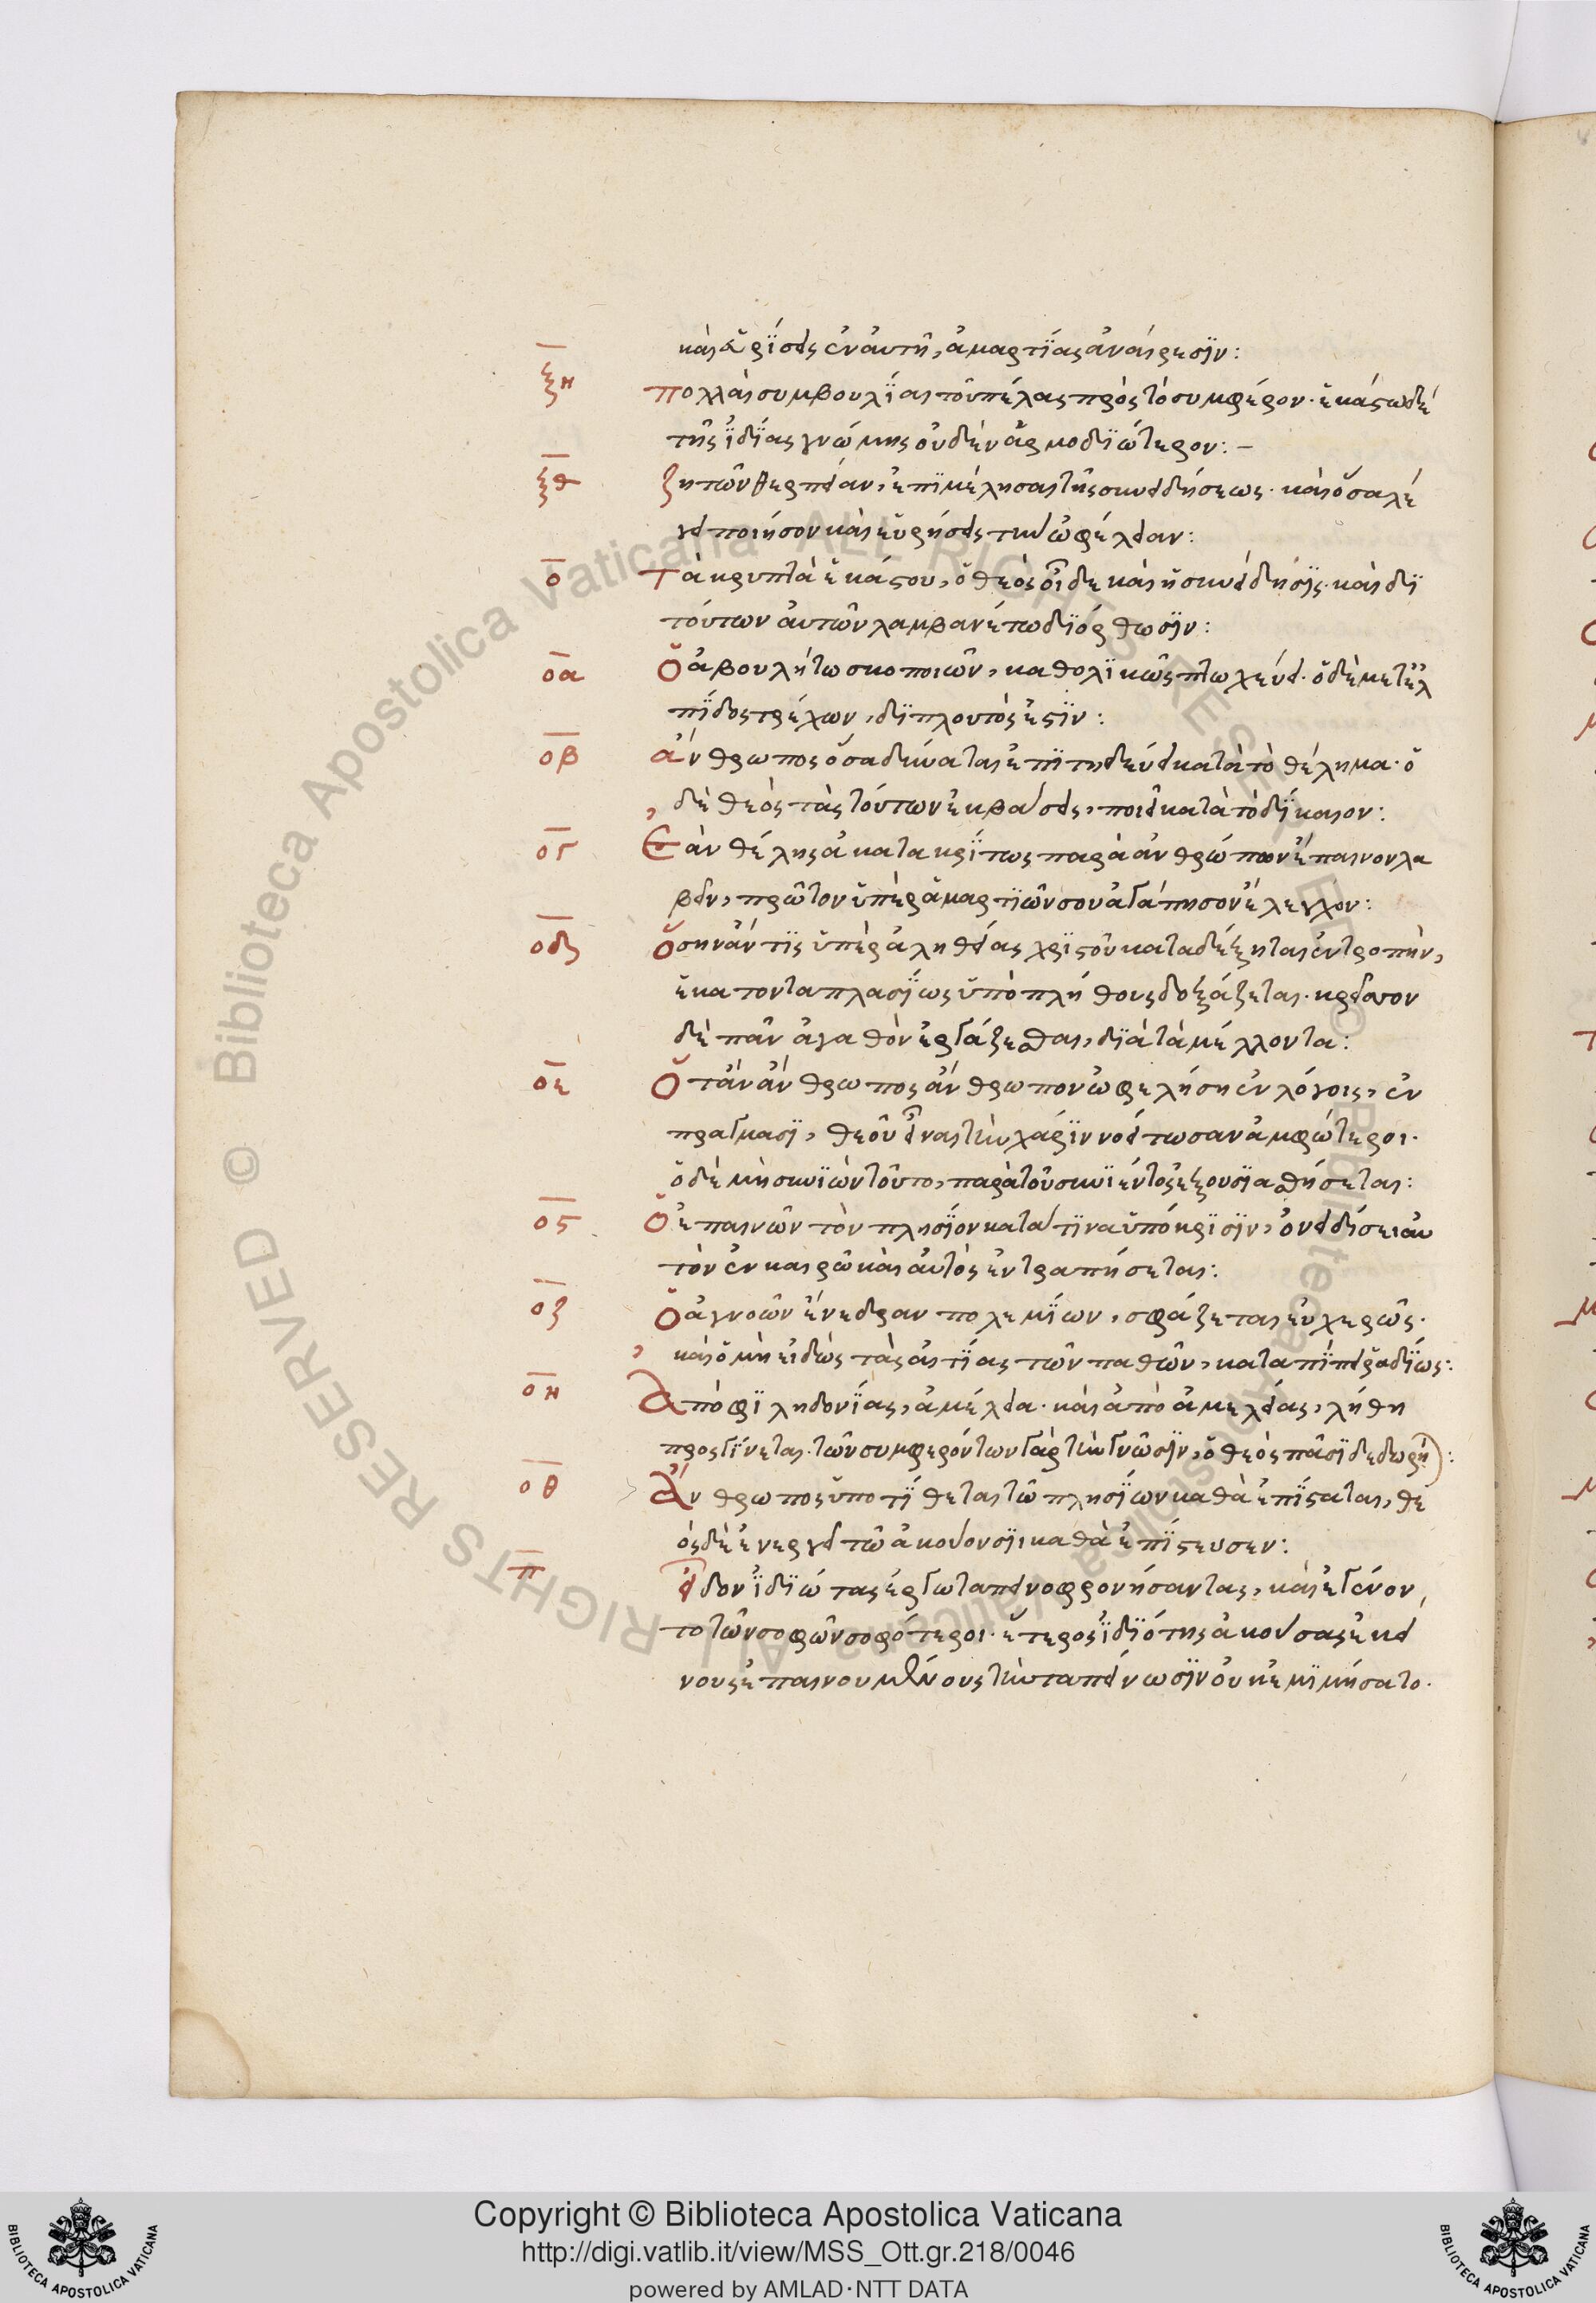 καὶ εὑρήσεις ἐν αὐτῆ, ἁμαρτίας ἀναίρεσιν:
ξη Πολλαὶ συμβουλίαι τοῦ πέλας πρὸς τὸ συμφέρον· ἑκάστω δὲ
τῆς ἰδίας γνώμης οὐδὲν ἁρμοδιώτερον:–
ξθ Ζητῶν θεραπείαν, ἐπιμέλησαι τῆς συνειδήσεως· καὶ ὅσα λέ
γει ποιήσον καὶ εὑρήσεις τὴν ὠφέλειαν:
ο Τὰ κρυπτὰ ἑκάστου, ὁ θεὸς οἶδε καὶ ἡ συνείδησις· καὶ διὰ
τούτων αὐτῶν λαμβανέτω διόρθωσιν:
οα Ὁ ἀβουλήτως κοποιῶν, καθολικῶς πτωχεύει· ὁ δὲ μετ' ἐλ
πίδος τρέχων, διπλουτός ἐστιν:
οβ Ἄνθρωπος ὅσα δύναται ἐπιτηδεύει κατὰ τὸ θέλημα· ὁ
δὲ θεὸς τὰς τούτων ἐκβάσεις, ποιεῖ κατὰ τὸ δίκαιον:
ογ Ἐὰν θέλης ἀκατακρίτως παρὰ ἀνθρώπων ἔπαινον λα
βεῖν, πρῶτον ὑπὲρ ἁμαρτιῶν σου ἀγάπησον ἔλεγχον:
οδ Ὅσην ἄν τις ὑπὲρ ἀληθείας χριστοῦ καταδέξηται ἐντροπὴν,
ἑκατονταπλασίως ὑπὸ πλήθους δοξάζεται· κρεῖσσον
δὲ πᾶν ἀγαθὸν ἐργάζεσθαι, διὰ τὰ μέλλοντα:
οε Ὅταν ἄνθρωπος ἄνθρωπον ὠφελήση ἐν λόγοις, ἐν
πράγμασι, θεοῦ εἶναι τὴν χάριν νοείτωσαν ἀμφώτεροι·
ὁ δὲ μὴ συνιὼν τοῦτο, παρὰ τοῦ συνιέντος ἐξουσιασθήσεται:
οϛ Ὁ ἐπαινῶν τὸν πλησίον κατά τινα ὑπόκρισιν, ὀνειδίσει αὐ
τὸν ἐν καιρῶ καὶ αὐτὸς ἐντραπήσεται:
οζ Ὁ ἀγνοῶν ἔνεδραν πολεμίων, σφάζεται εὐχερῶς·
καὶ ὁ μὴ εἰδὼς τὰς αἰτίας τῶν παθῶν, καταπίπτει ῥαδίως:
οη Ἀπὸ φιληδονίας, ἀμέλεια· καὶ ἀπὸ ἀμελείας, λήθη
προσγίνεται· τῶν συμφερόντων γὰρ τὴν γνῶσιν, ὁ θεὸς πᾶσι δεδώρη(ται):
οθ Ἄνθρωπος ὑποτίθεται τῶ πλησίων καθὰ ἐπίσταται, θε
ὸς δὲ ἐνεργεῖ τῶ ἀκούονσιι καθὰ ἐπίστευσεν:
π Εἶδον ἰδιώτας ἔργω ταπεινοφρονήσαντας, καὶ ἐγένον
το τῶν σοφῶν σοφότεροι· ἕτερος ἰδιότης ἀκούσας ἐκεί
νους ἐπαινουμένους τὴν ταπείνωσιν οὐκ ἐμιμήσατο.
© Biblioteca Apostolica Vaticana ALL RIGHTS RESERVED © Biblioteca Apostolica Vaticana ALL RIGHTS RESERVED
Copyright © Biblioteca Apostolica Vaticana
http://digi.vatlib.it/view/MSS_Ott.gr.218/0046
powered by AMLAD·NTT DATA
BIBLIOTECA APOSTOLICA VATICANA
BIBLIOTECA APOSTOLICA VATICANA